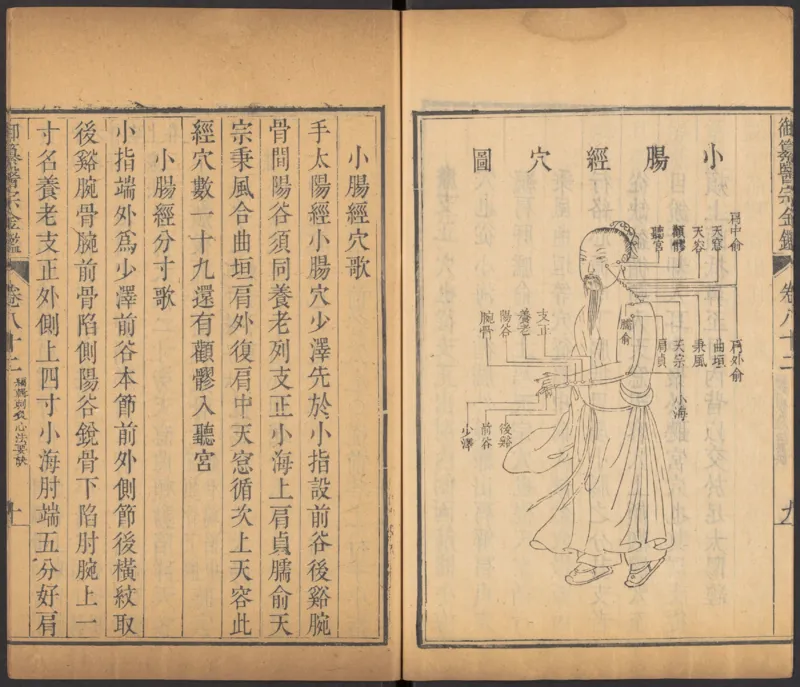 御纂醫宗金鑑
卷八十二
九
小腸經穴圖
肩中俞
天窓
天容
顴髎
聽宮
肩外俞
曲垣
秉風
天宗
臑俞
肩貞
小海
支正
養老
陽谷
腕骨
後谿
前谷
少澤
小腸經穴歌
手太陽經小腸穴少澤先於小指設前谷後谿腕
骨間陽谷須同養老列支正小海上肩貞臑俞天
宗秉風合曲垣肩外復肩中天窓循次上天容此
經穴數一十九還有顴髎入聽宮
小腸經分寸歌
小指端外爲少澤前谷本節前外側節後橫紋取
後谿腕骨腕前骨陷側陽谷銳骨下陷肘腕上一
寸名養老支正外側上四寸小海肘端五分好肩
御纂醫宗金鑑
卷八十二
刺灸心法要訣
十